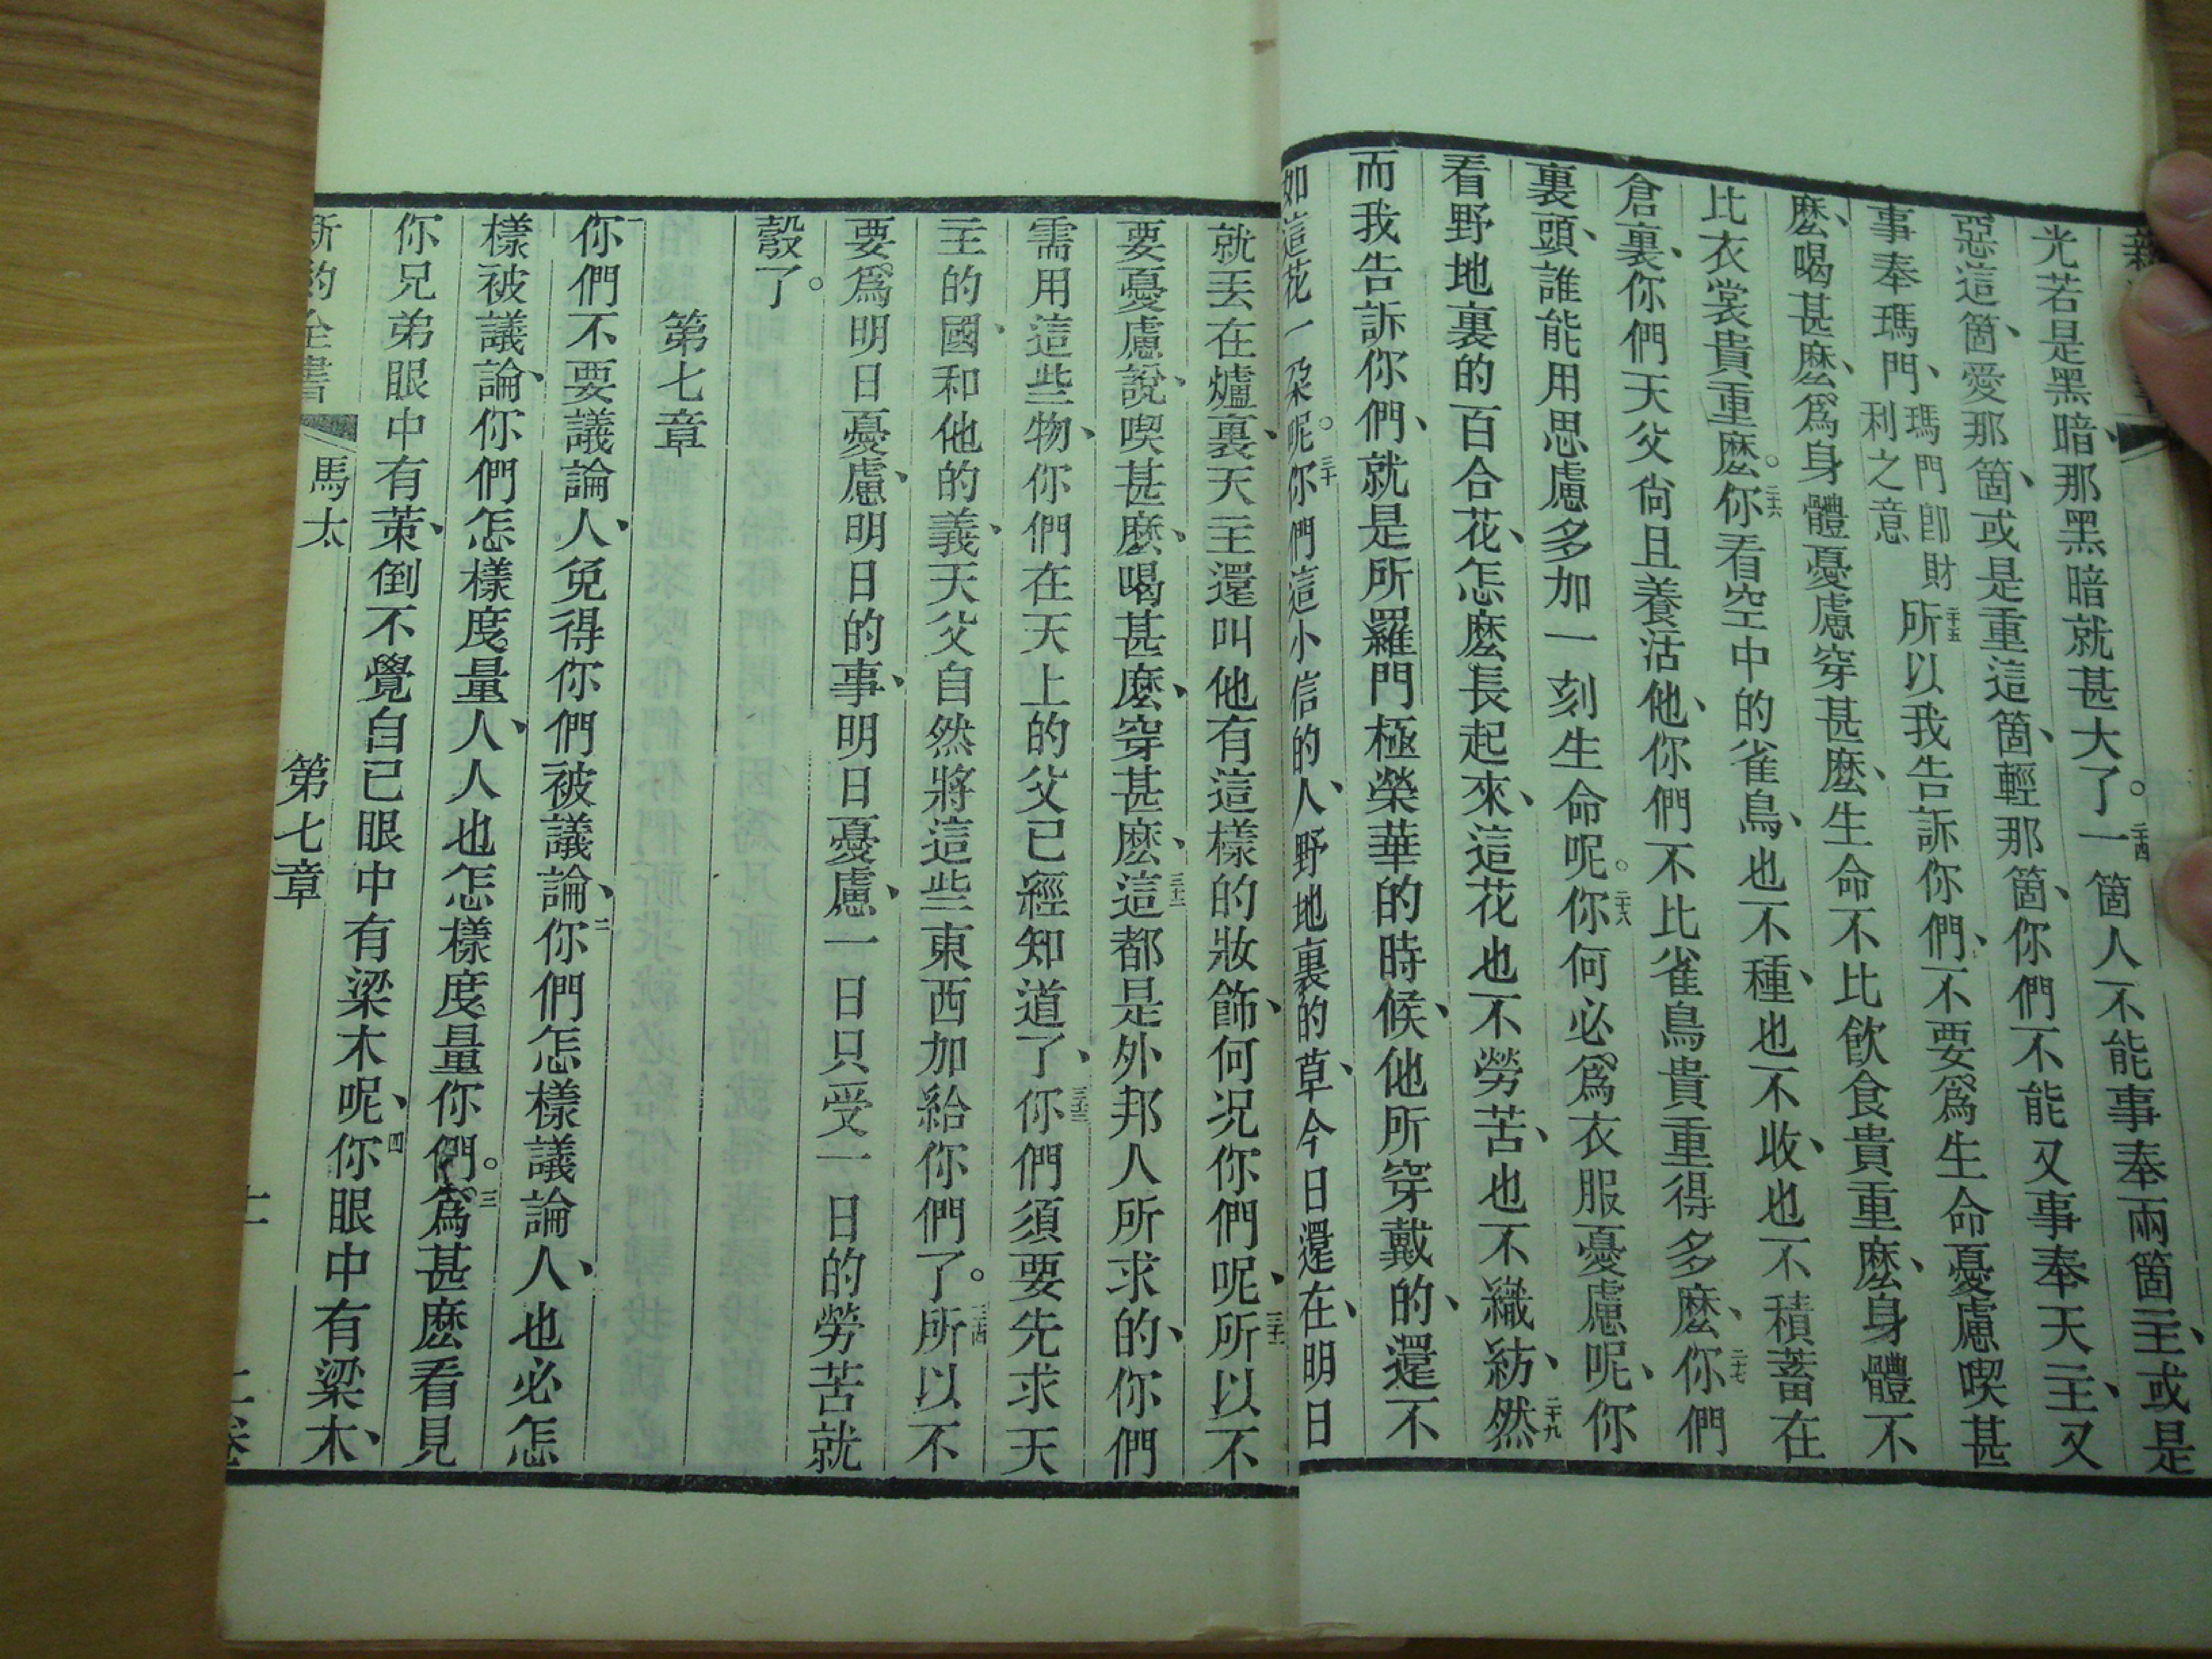 光若是黑暗、那黑暗就甚大了。二十四一箇人不能事奉兩箇主、或是
惡這箇、愛那箇、或是重這箇、輕那箇、你們不能又事奉天主、又
事奉瑪門、瑪門卽財利之意二十五所以我告訴你們、不要爲生命憂慮喫甚
麽、喝甚麽、爲身體憂慮穿甚麽、生命不比飮食貴重麽、身體不
比衣裳貴重麽。二十六你看空中的雀鳥、也不種、也不收、也不積蓄在
倉裏、你們天父尙且養活他、你們不比雀鳥貴重得多麽、二十七你們
裏頭、誰能用思慮多加一刻生命呢。二十八你何必爲衣服憂慮呢、你
看野地裏的百合花、怎麽長起來、這花也不勞苦、也不織紡、二十九然
而我告訴你們、就是所羅門極榮華的時候、他所穿戴的、還不
如這花一朶呢。三十你們這小信的人、野地裏的草、今日還在、明日
就丟在爐裏、天主還叫他有這樣的妝飾、何况你們呢、三十一所以不
要憂慮說、喫甚麽、喝甚麽、穿甚麽、三十二這都是外邦人所求的、你們
需用這些物、你們在天上的父已經知道了、三十三你們須要先求天
主的國、和他的義、天父自然將這些東西加給你們了。三十四所以不
要爲明日憂慮、明日的事、明日憂慮、一日只受一日的勞苦就
彀了。
第七章
一你們不要議論人、免得你們被議論、二你們怎樣議論人、也必怎
樣被議論、你們怎樣度量人、人也怎樣度量你們。三爲甚麽看見
你兄弟眼中有莿、倒不覺自已眼中有梁木呢、四你眼中有梁木、
新約全書 馬太 第七章